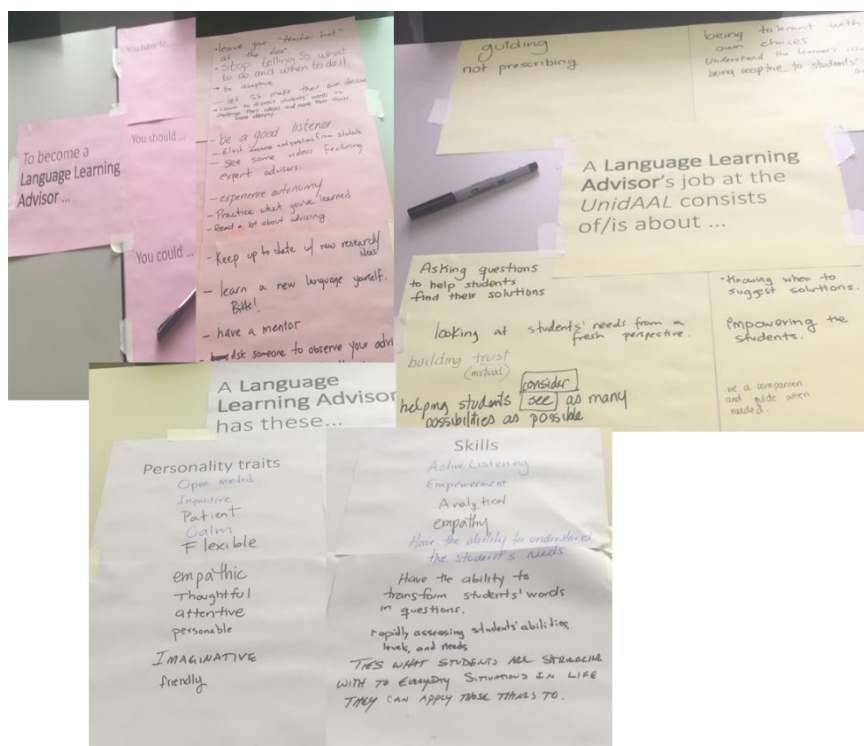 To become a
Language Learning
Advisor ...
You have to...
• leave your "teacher hat"
at the door
• Stop telling Ss what
to do and when to do it
• Be
— let Ss make their own
You should ...
- be a good listener
- See some videos featuring
expert advisors.
- experience autonomy
- Practice what you've learned
- Read a lot about advising.
You could ...
- Keep up to date w/ new research/
ideas!
- learn a new language yourself.
- have a mentor
- Ask someone to observe your
guiding
not prescribing
being tolerant with
own choices
Understand the learner's
being receptive to students'
A Language Learning
Advisor's job at the
UnidAAL consists
of/is about ...
Asking questions
to help students
find their solutions
looking at students' needs from a
fresh perspective.
building trust
(mutual)
consider
helping students see as many
possibilities as possible
• Knowing when to
suggest solutions.
Empowering the
students.
be a companion
and guide when
needed.
A Language
Learning Advisor
has these...
Personality traits
Open minded
Patient
Calm
Flexible
empathic
Thoughtful
attentive
personable
IMAGINATIVE
friendly
Skills
Active Listening
Empowerment
Analytical
empathy
Have the ability to understand
the student's needs
Have the ability to
transform students' words
in questions.
rapidly assessing students' abilities,
levels, and needs
TIES WHAT STUDENTS ARE
WITH TO EVERYDAY SITUATIONS IN LIFE
THEY CAN APPLY THOSE THINGS TO.